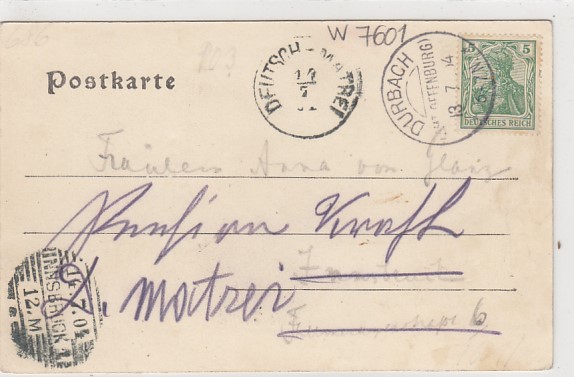 W 7601
Postkarte
DEUTSCH-MATREI
14
7
DURBACH
(A. OFFENBURG)
13 7 04
5 5
DEUTSCHES REICH
Fräulein Anna von
Pension Kraft
D. Matrei
Innsbruck
6
INNSBRUCK 1
14.7.04
12.M